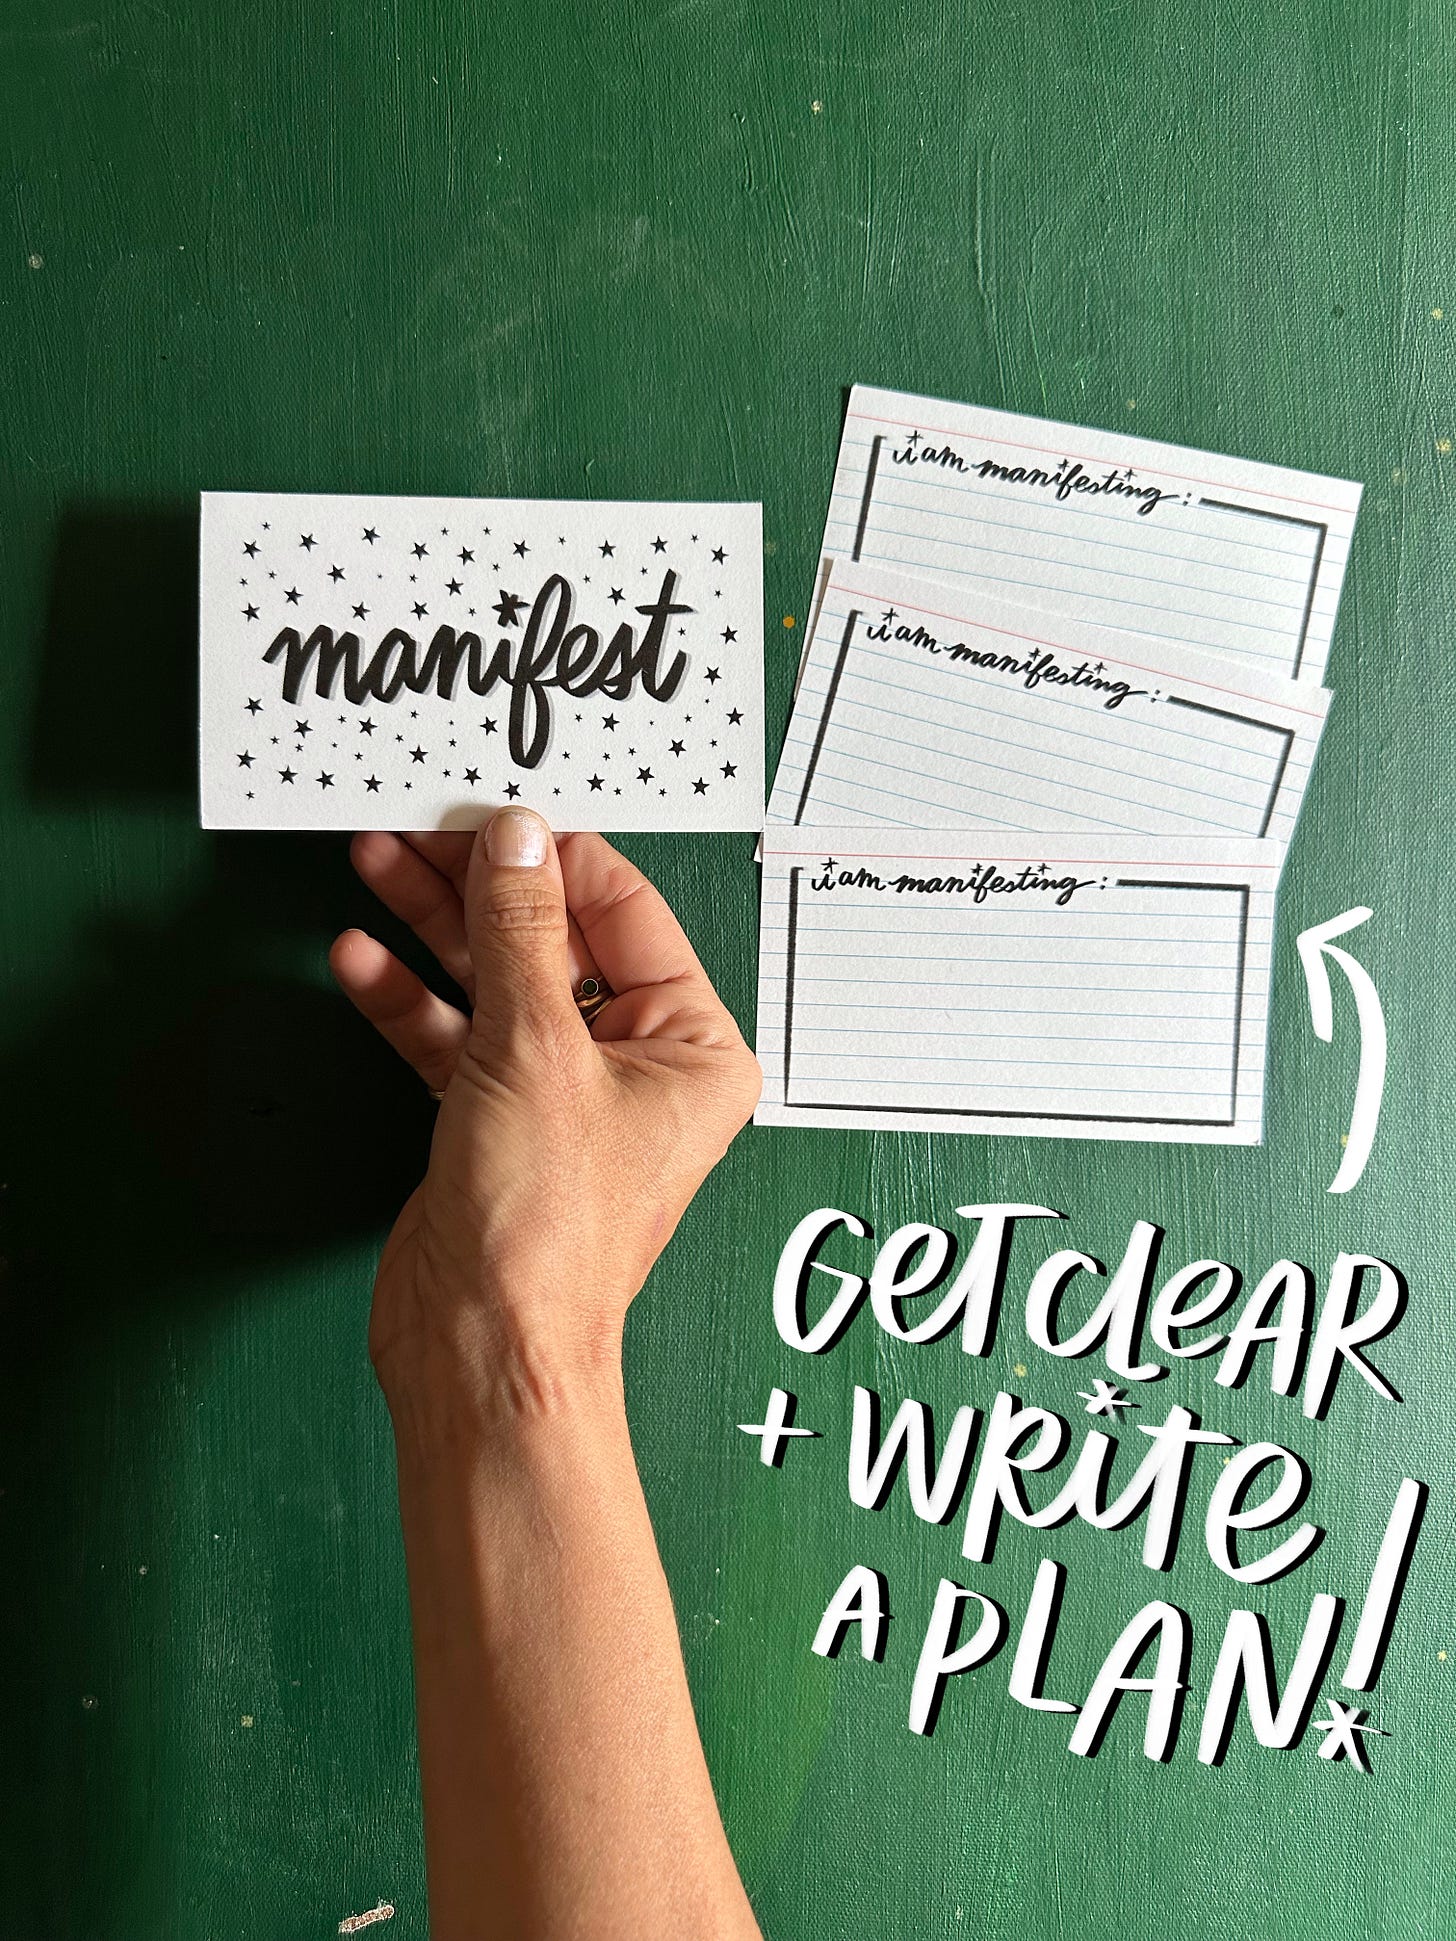 manifest
i am manifesting:
i am manifesting:
i am manifesting:
GeT cleAR
+ WRiTe
A PLAN!